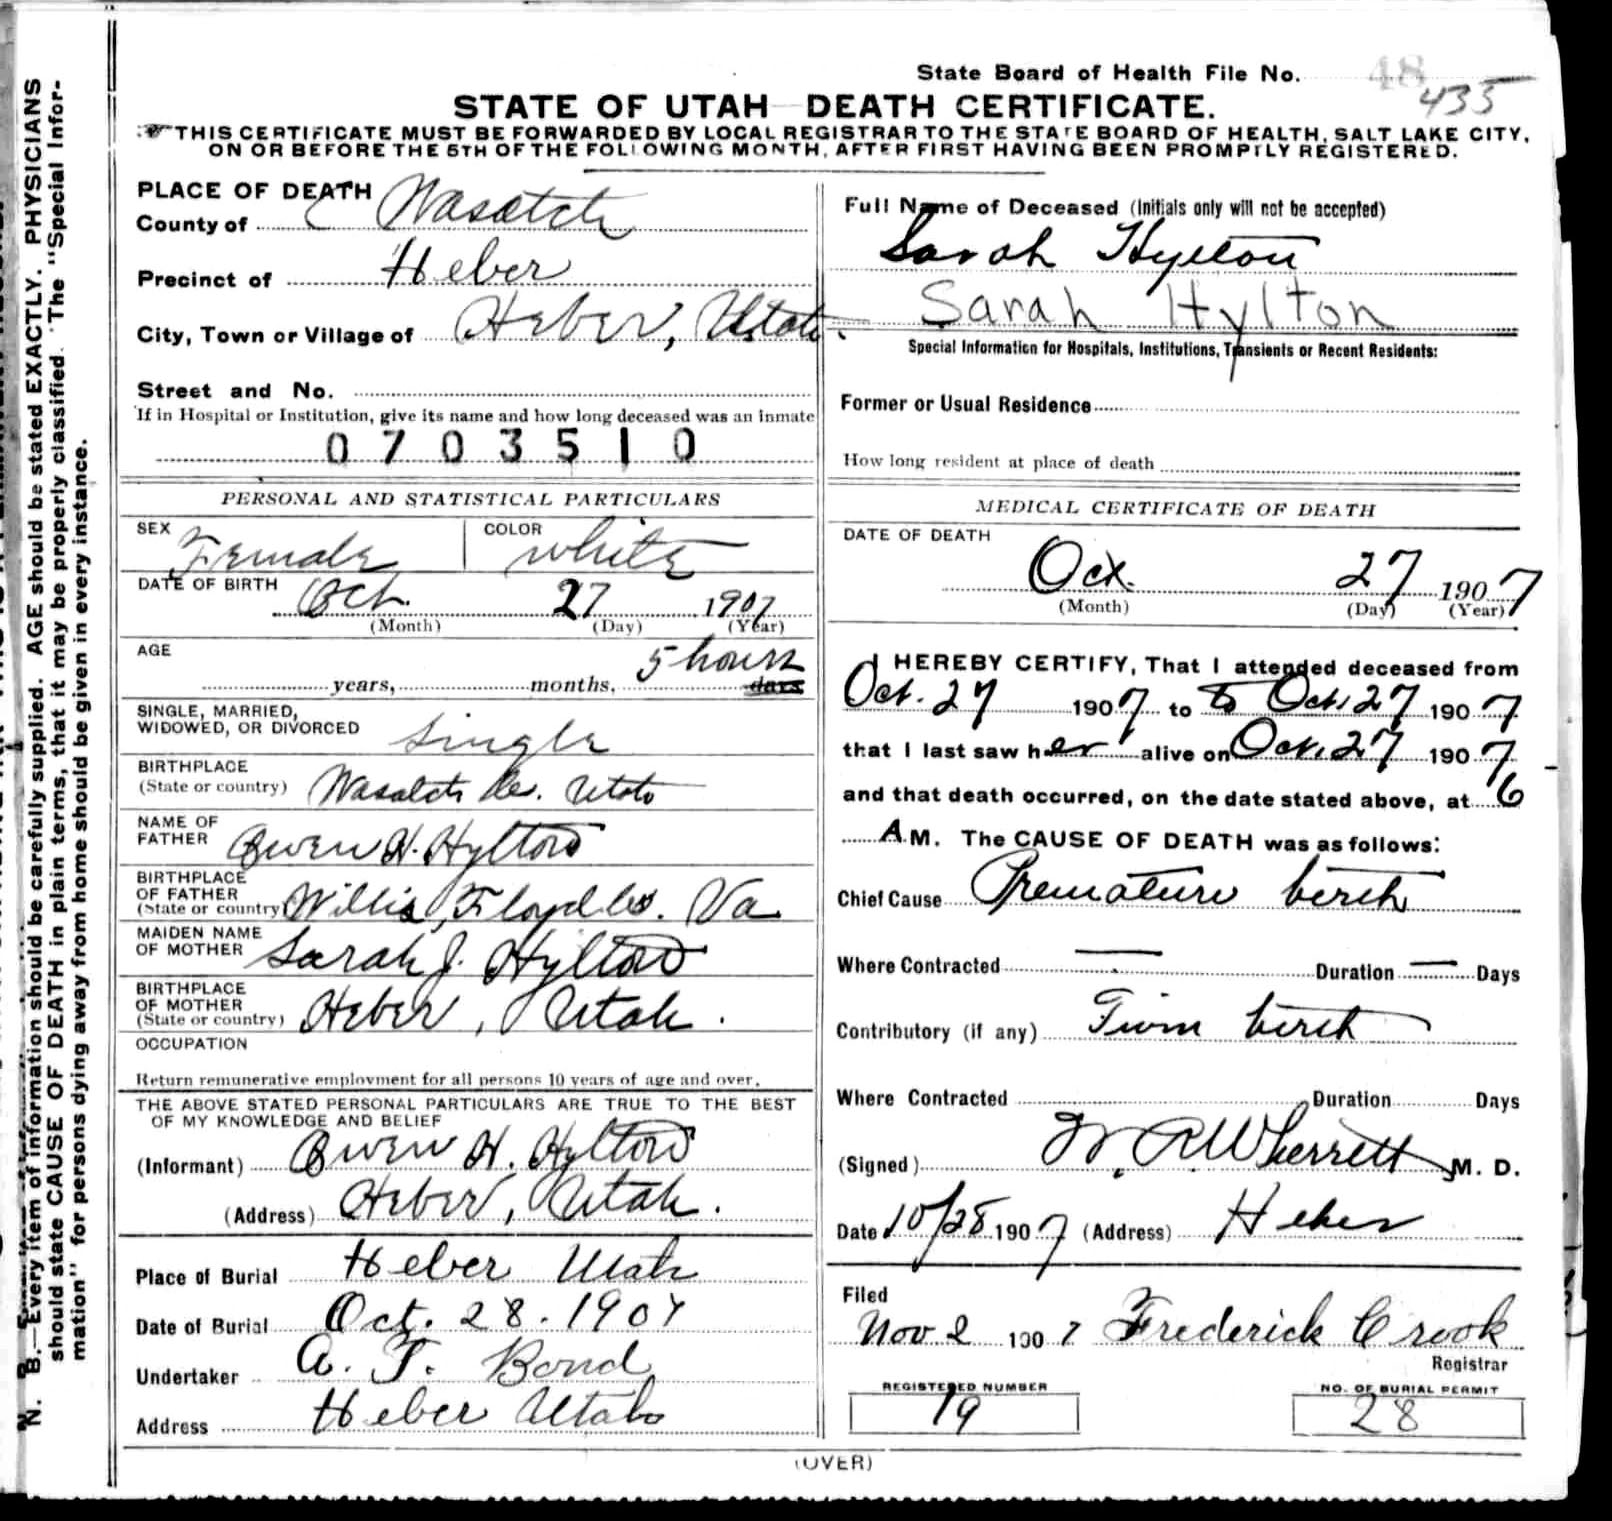 State Board of Health File No. 48
435
STATE OF UTAH DEATH CERTIFICATE.
THIS CERTIFICATE MUST BE FORWARDED BY LOCAL REGISTRAR TO THE STATE BOARD OF HEALTH, SALT LAKE CITY,
ON OR BEFORE THE 5TH OF THE FOLLOWING MONTH, AFTER FIRST HAVING BEEN PROMPTLY REGISTERED.
PLACE OF DEATH
County of Wasatch
Precinct of Heber
City, Town or Village of Heber, Utah.
Street and No.
If in Hospital or Institution, give its name and how long deceased was an inmate
0703510
PERSONAL AND STATISTICAL PARTICULARS
SEX Female COLOR White
DATE OF BIRTH Oct. 27 1907
(Month) (Day) (Year)
AGE 5 hours
years, months, days
SINGLE, MARRIED,
WIDOWED, OR DIVORCED Single
BIRTHPLACE
(State or country) Wasatch Co. Utah
NAME OF
FATHER Owen H. Hylton
BIRTHPLACE
OF FATHER
(State or country) Willis, Floyd Co. Va
MAIDEN NAME
OF MOTHER Sarah J. Hylton
BIRTHPLACE
OF MOTHER
(State or country) Heber, Utah.
OCCUPATION
Return remunerative employment for all persons 10 years of age and over.
THE ABOVE STATED PERSONAL PARTICULARS ARE TRUE TO THE BEST
OF MY KNOWLEDGE AND BELIEF
(Informant) Owen H. Hylton
(Address) Heber, Utah.
Place of Burial Heber Utah
Date of Burial Oct. 28. 1907
Undertaker A. T. Bond
Address Heber Utah
Full Name of Deceased (Initials only will not be accepted)
Sarah Hylton
Sarah Hylton
Special Information for Hospitals, Institutions, Transients or Recent Residents:
Former or Usual Residence
How long resident at place of death
MEDICAL CERTIFICATE OF DEATH
DATE OF DEATH
Oct. 27 1907
(Month) (Day) (Year)
I HEREBY CERTIFY, That I attended deceased from
Oct. 27 1907 to to Oct. 27 1907
that I last saw her alive on Oct. 27 1907
and that death occurred, on the date stated above, at 6
A M. The CAUSE OF DEATH was as follows:
Chief Cause Premature birth
Where Contracted — Duration — Days
Contributory (if any) Twin birth
Where Contracted Duration Days
(Signed) W. R. Wherrett M. D.
Date 10/28 1907 (Address) Heber
Filed
Nov 2 1907 Frederick Crook
Registrar
REGISTERED NUMBER
19
NO. OF BURIAL PERMIT
28
(OVER)
N. B.—Every item of information should be carefully supplied. AGE should be stated EXACTLY. PHYSICIANS
should state CAUSE OF DEATH in plain terms, that it may be properly classified. The "Special Infor-
mation" for persons dying away from home should be given in every instance.